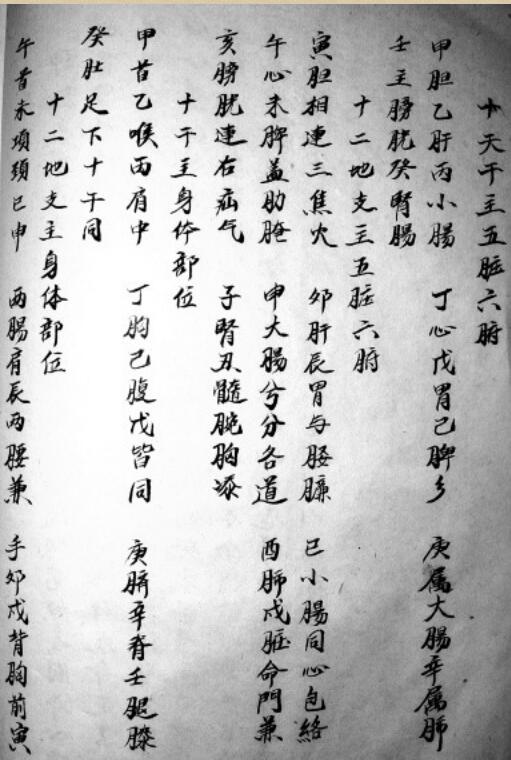 十天干主五脏六腑
甲胆乙肝丙小腸 丁心戊胃己脾乡 庚属大腸辛属肺
壬主膀胱癸腎腸
十二地支主五脏六腑
寅胆相連三焦火 卯肝辰胃与腰臁 巳小腸同心包絡
午心未脾並肋 申大腸兮分各道 酉肺戌命門兼
亥膀胱連右疝气 子腎丑髓腕胸
十干主身体部位
甲首乙喉丙肩中 丁胸己腹戊皆同 庚臍辛脊壬腿膝
癸肚足下十干同
十二地支主身体部位
午首未項頸巳申 两腸肩辰两腰兼 手卯戌背胸前寅